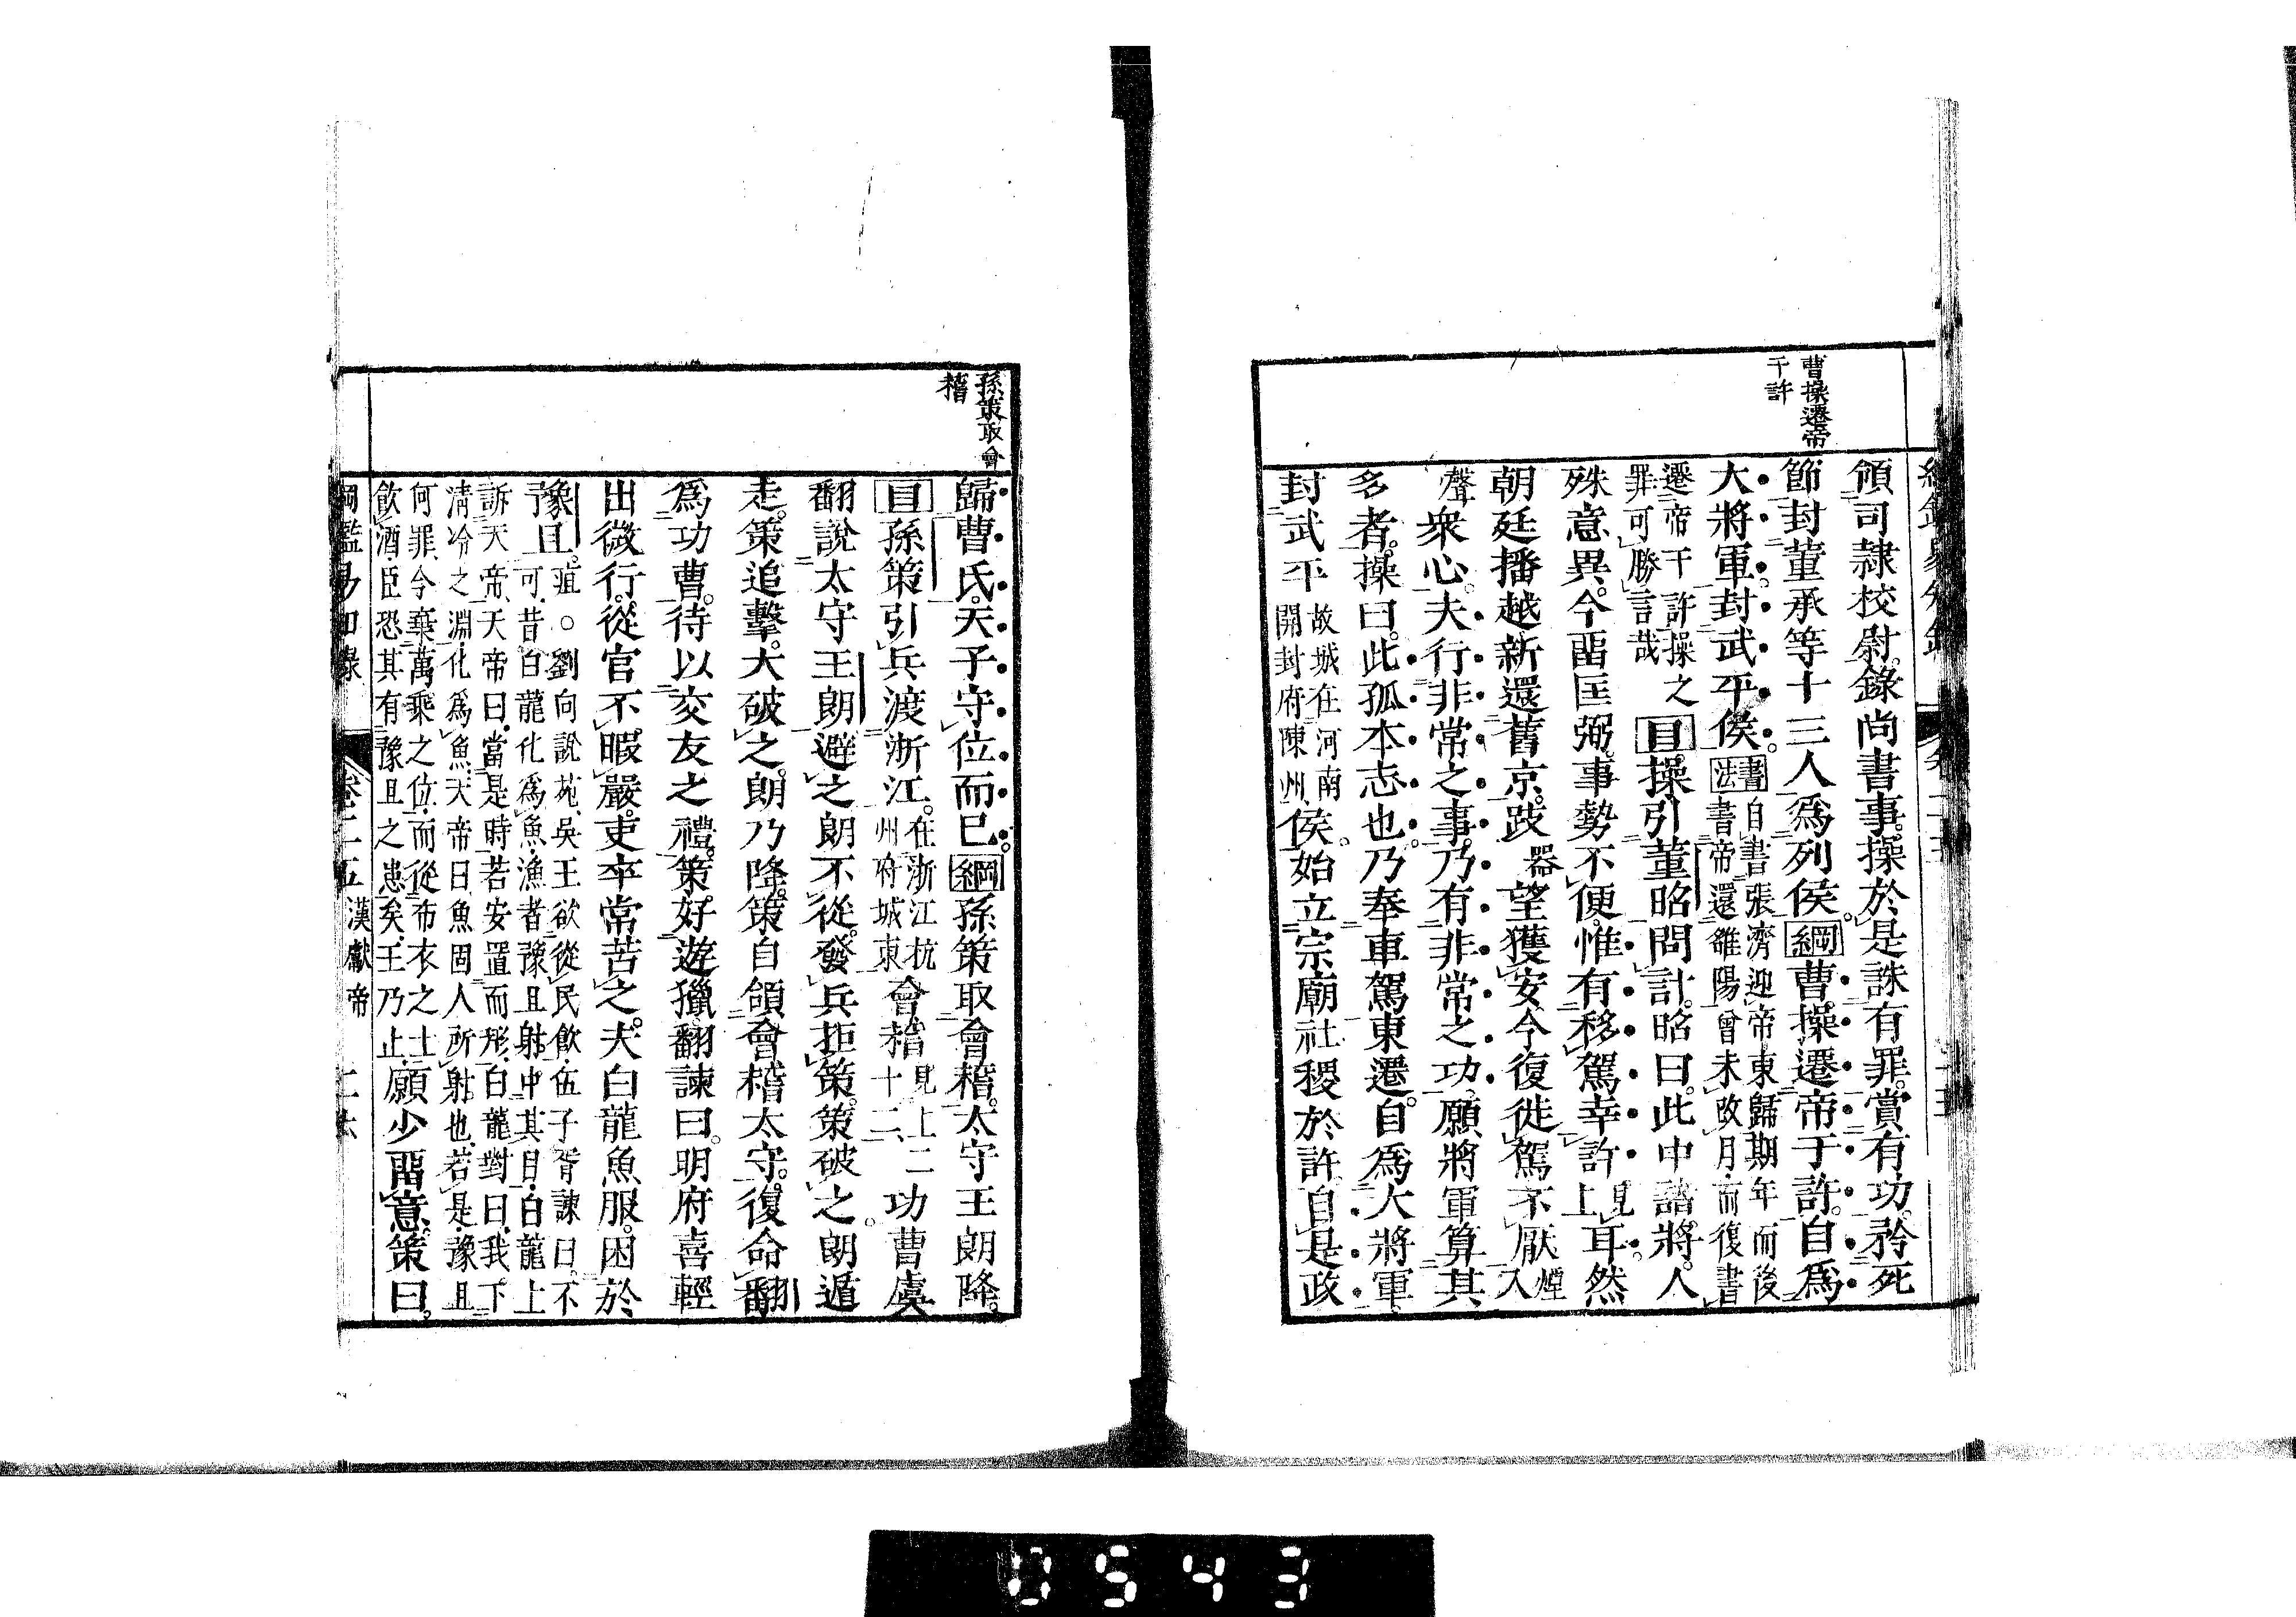 曹操遷帝
于許
領司隷校尉。錄尚書事。操於是誅有罪。賞有功。矜死
節。封董承等十三人爲列侯。綱曹操遷帝于許。自爲
大將軍。封武平侯。書法自書張濟迎帝東歸期年而後
書帝還雒陽曾未改月而復書
遷帝于許操之
罪可勝言哉目操引董昭問計。昭曰。此中諸將。人
殊意異。今畱匡弼。事勢不便。惟有移駕幸許上見耳。然
朝廷播越。新還舊京。跂器望獲安。今復徙駕。不厭煙入
聲衆心。夫行非常之事。乃有非常之功。願將軍算其
多者。操曰。此孤本志也。乃奉車駕東遷。自爲大將軍。
封武平故城在河南
開封府陳州侯。始立宗廟社稷於許。自是政
孫策取會
稽
歸曹氏。天子守位而已。綱孫策取會稽。太守王朗降。
目孫策引兵渡浙江。在浙江杭
州府城東會稽見上二
十二、功曹虞
翻說太守王朗避之。朗不從。發兵拒策。策破之。朗遁
走。策追擊。大破之。朗乃降。策自領會稽太守。復命翻
爲功曹。待以交友之禮。策好遊獵。翻諫曰。明府喜輕
出微行。從官不暇嚴。吏卒常苦之。夫白龍魚服。困於
豫且。疽。○劉向說苑、吳王欲從民飲、伍子胥諫曰、不
可、昔白龍化爲魚、漁者豫且射中其目、白龍上
訴天帝、天帝曰、當是時若安置而形、白龍對曰、我下
淸冷之淵化爲魚、天帝曰魚固人所射也、若是、豫且
何罪、今棄萬乘之位、而從布衣之士
飲酒臣恐其有豫且之患矣、王乃止、願少畱意。策曰。
綱鑑易知錄 卷二五 漢獻帝 二六